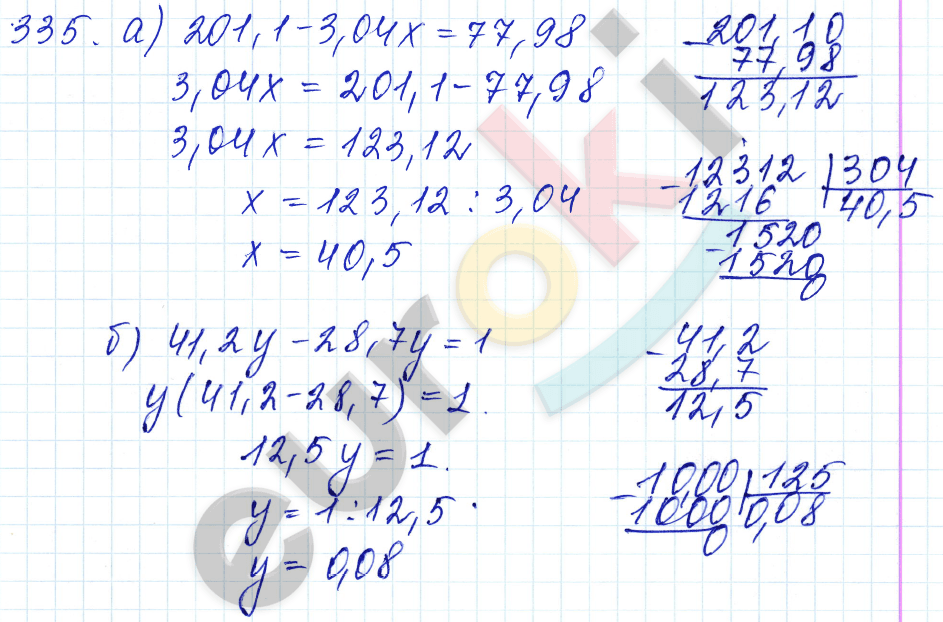 335. а) 201,1-3,04x=77,98
3,04x = 201,1-77,98
3,04x = 123,12
x = 123,12 : 3,04
x = 40,5
201,10
- 77,98
123,12
- 12312 | 304
1216 40,5
- 1520
1520
0
б) 41,2y - 28,7y = 1
y(41,2-28,7) = 1.
12,5y = 1.
y = 1:12,5.
y = 0,08
- 41,2
28,7
12,5
- 1000 | 125
1000 0,08
0
euroki